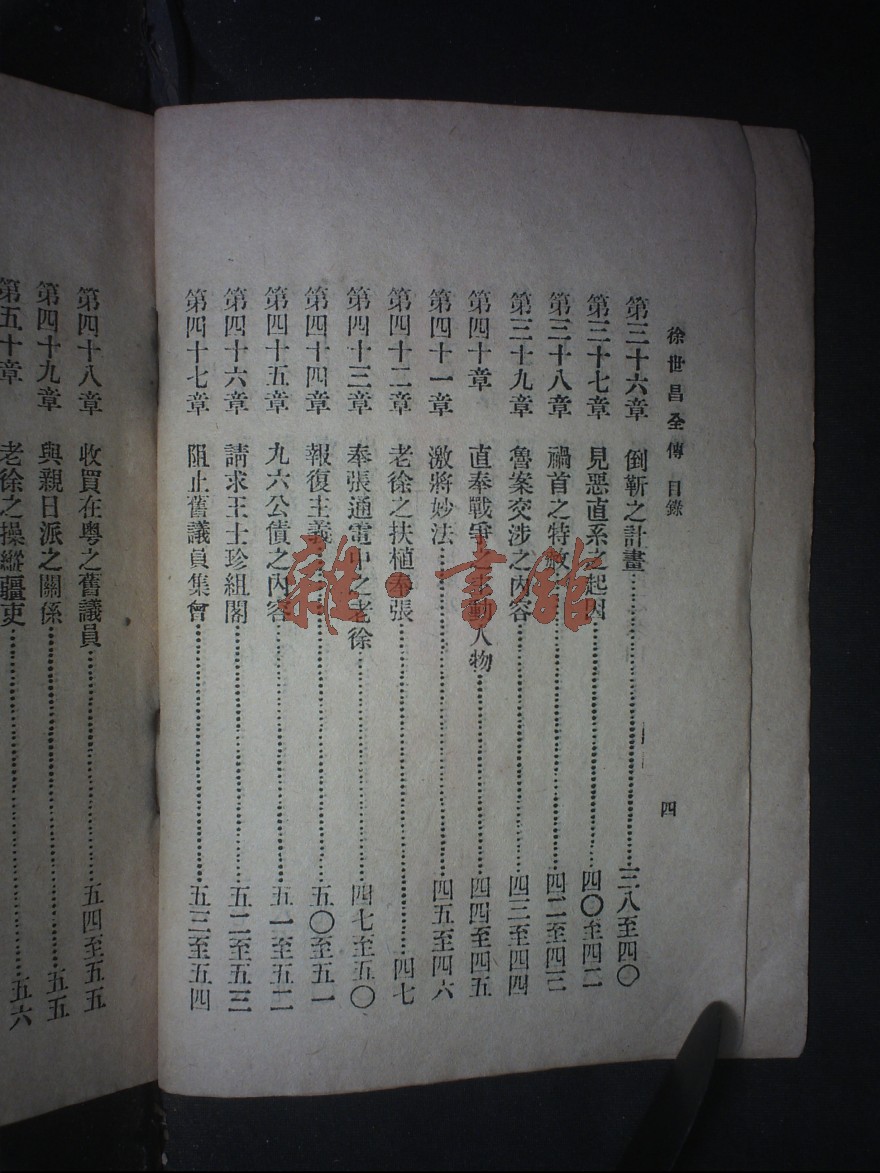 徐世昌全傳 目錄
四
第三十六章 倒靳之計畫…………三八至四〇
第三十七章 見惡直系之起因…………四〇至四二
第三十八章 禍首之特赦…………四二至四三
第三十九章 魯案交涉之內容…………四三至四四
第四十章 直奉戰爭之主動人物…………四四至四五
第四十一章 激將妙法…………四五至四六
第四十二章 老徐之扶植奉張…………四七
第四十三章 奉張通電中之老徐…………四七至五〇
第四十四章 報復主義…………五〇至五一
第四十五章 九六公債之內容…………五一至五二
第四十六章 請求王士珍組閣…………五二至五三
第四十七章 阻止舊議員集會…………五三至五四
第四十八章 收買在粵之舊議員…………五四至五五
第四十九章 與親日派之關係…………五五
第五十章 老徐之操縱疆吏…………五六
雜·書館